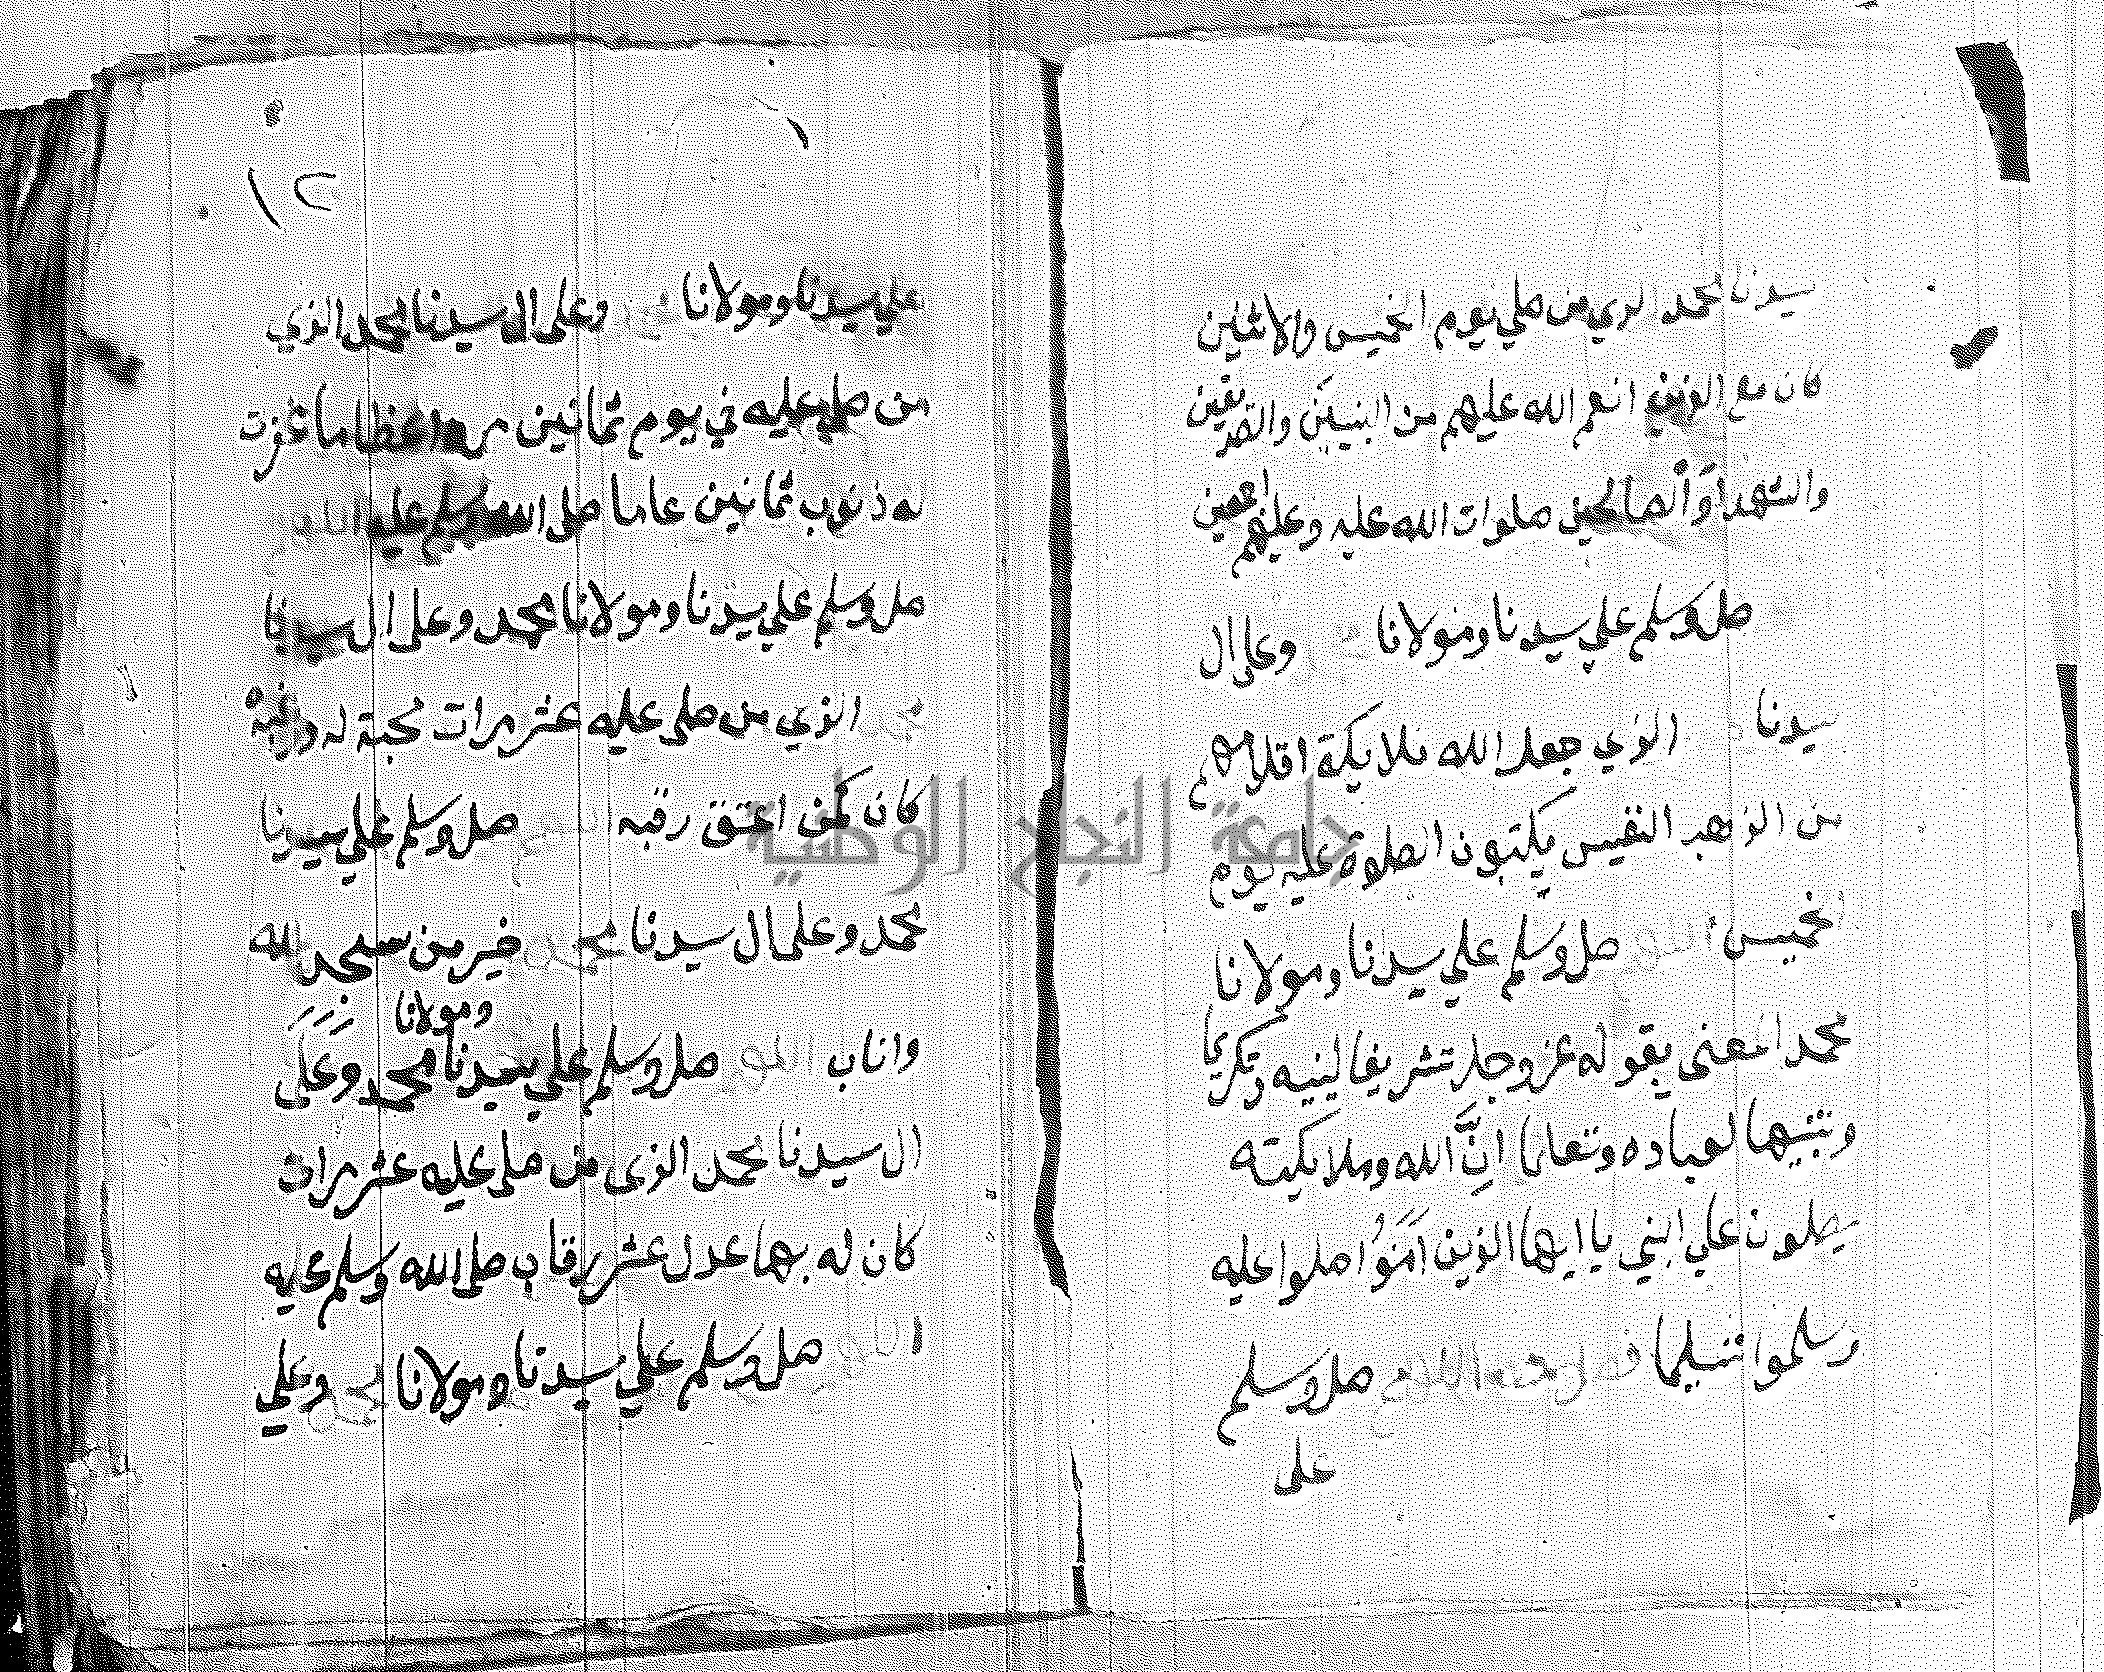 سيدنا محمد الذي من صلي يوم الخميس والاثنين
كان مع الذين انعم الله عليهم من النبيين والصديقين
والشهداء والصالحين صلوات الله عليه وعليهم اجمعين
صل وسلم علي سيدنا ومولانا وعلى ال
سيدنا الذي جعل الله ملايكة اقلامهم
من الذهب النفيس يكتبون الصلوة عليه يوم
الخميس اللهم صل وسلم علي سيدنا ومولانا
محمد المعنى بقوله عز وجل تشريفا لنبيه وتكريما
وتنبيها لعباده وتعليما انَّ الله وملايكته
يصلون علي النبي يا ايها الذين امَنَوُا صلوا عليه
وسلموا تسليما اللهم صل وسلم
على
١٢
علي سيدنا ومولانا وعلى ال سيدنا محمد الذي
من صلي عليه في يوم ثمانين مره غفرت
له ذنوب ثمانين عاما صلى الله وسلم عليه اللهم
صل وسلم علي سيدنا ومولانا محمد وعلى ال سيدنا
محمد الذي من صلى عليه عشر مرات محبة له
كان كمن اعتق رقبه اللهم صل وسلم علي سيدنا
محمد وعلى ال سيدنا محمد خير من سجد لله
ومولانا
واناب اللهم صل وسلم علي سيدنا محمد وعلى
ال سيدنا محمد الذى من صلى عليه عشر مرات
كان له بها عدل عشر رقاب صلى الله وسلم عليه
اللهم صل وسلم علي سيدنا ومولانا محمد وعلي
جامعة النجاح الوطنية